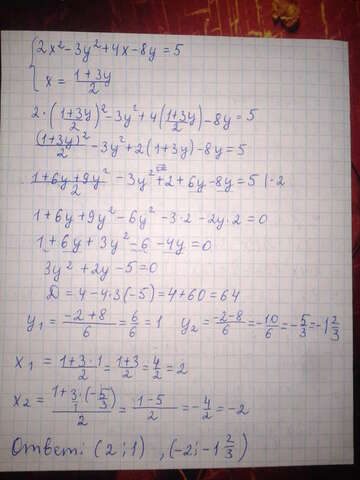 {2x²-3y²+4x-8y=5
x = (1+3y)/2
2·((1+3y)/2)²-3y²+4((1+3y)/2)-8y=5
(1+3y)²/2 -3y²+2(1+3y)-8y=5
(1+6y+9y²)/2 -3y²+2+6y-8y=5 |·2
1+6y+9y²-6y²-3·2-2y·2=0
1+6y+3y²-6-4y=0
3y²+2y-5=0
D=4-4·3(-5)=4+60=64
y₁=(-2+8)/6=6/6=1 y₂=(-2-8)/6=-10/6=-5/3=-1 2/3
x₁=(1+3·1)/2=(1+3)/2=4/2=2
x₂=(1+3/1·(-5/3))/2=(1-5)/2=-4/2=-2
Ответ: (2;1), (-2;-1 2/3)